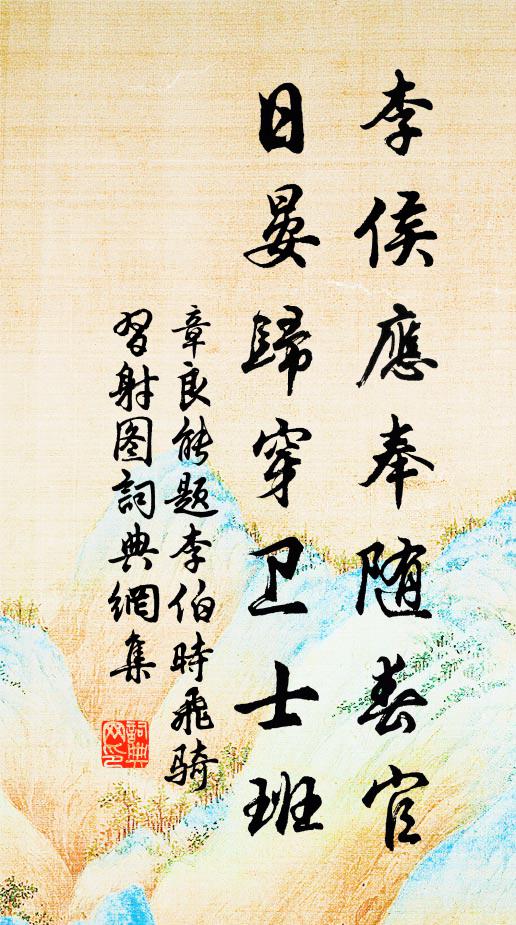 李侯應奉随春官
日晏歸穿卫士班
章良能题李伯時飛骑
習射图詞典網集
詞典網印